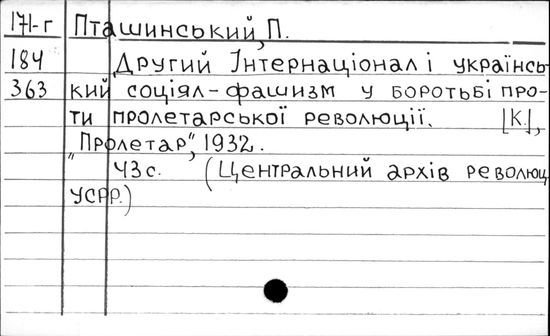 171-г Пташинський, П.
184 Другий Інтернаціонал і українсь-
363 кий соціял-фашизм у боротьбі про-
ти пролетарської революції. [К.],
"Пролетар", 1932.
43 с. (Центральний архів революц.
УСРР.)